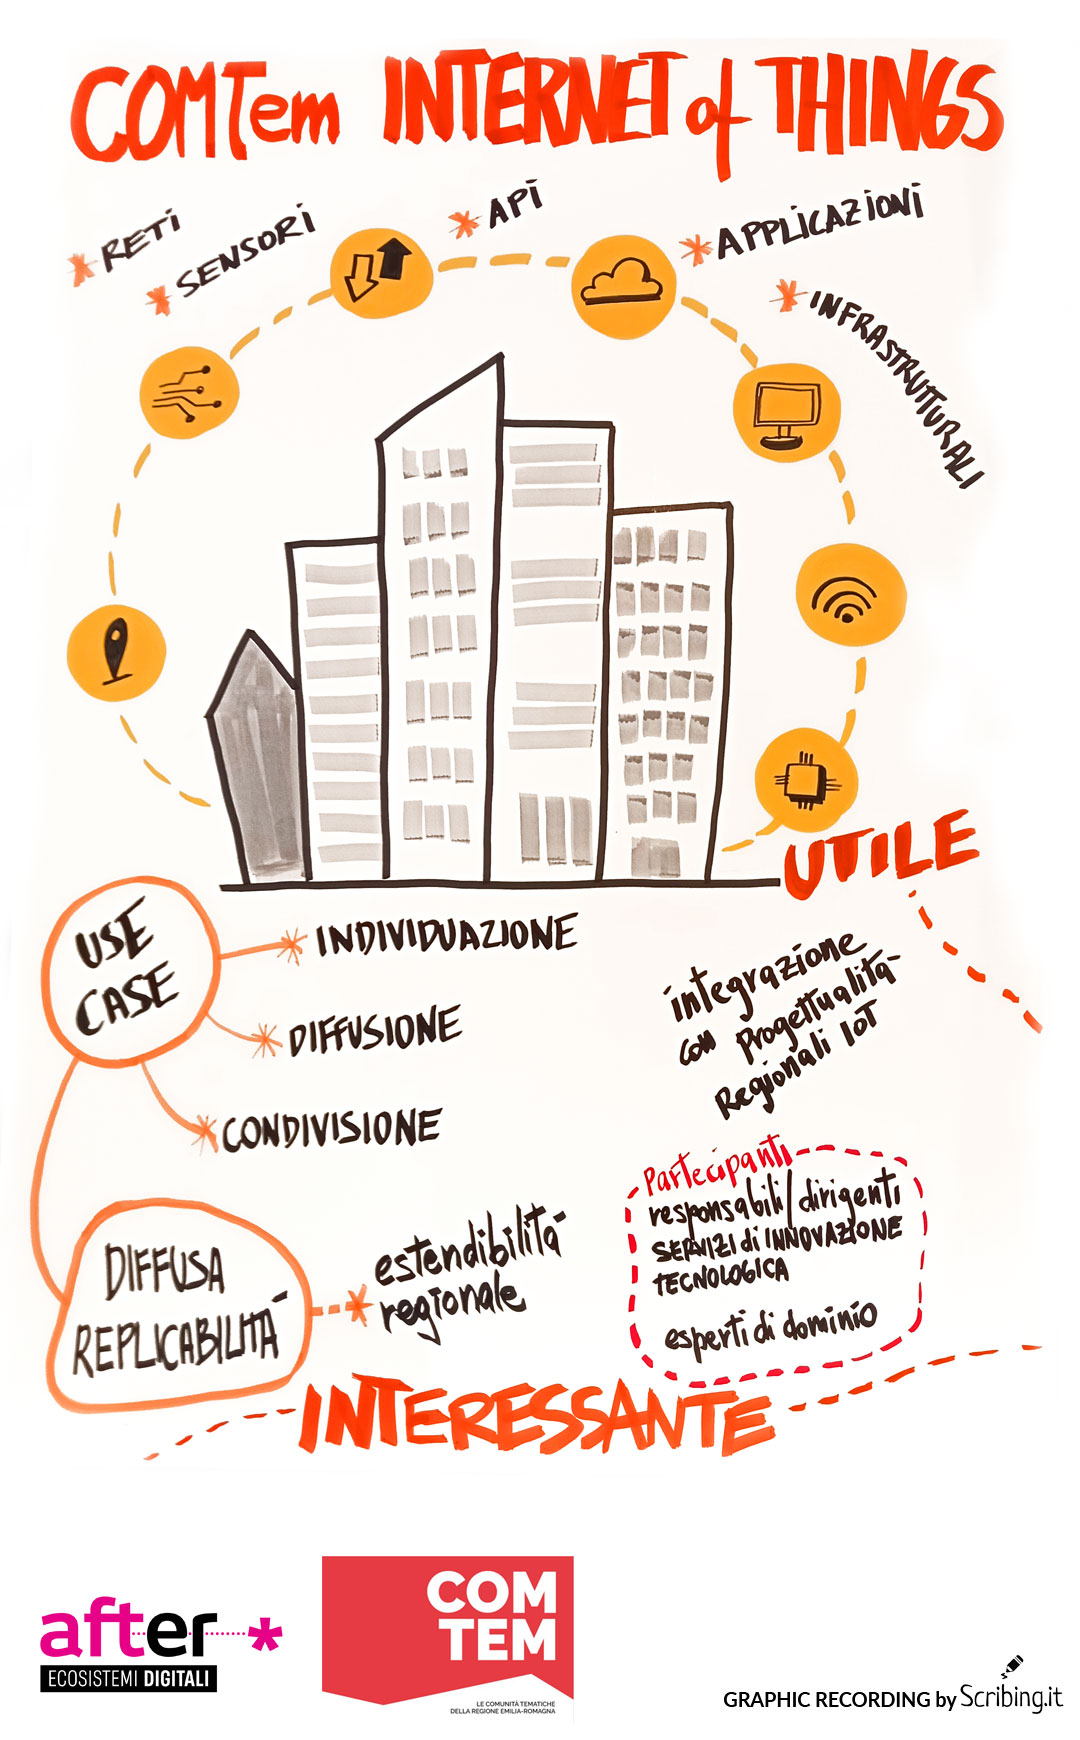 COMTem INTERNET of THINGS
* RETI
* SENSORI
* API
* APPLICAZIONI
* INFRASTRUTTURALI
UTILE
USE
CASE
* INDIVIDUAZIONE
* DIFFUSIONE
* CONDIVISIONE
integrazione
con Progettualità
Regionali IoT
DIFFUSA
REPLICABILITÀ
* estendibilità
regionale
Partecipanti
responsabili/dirigenti
SERVIZI di INNOVAZIONE
TECNOLOGICA
esperti di dominio
INTERESSANTE
after*
ECOSISTEMI DIGITALI
COM
TEM
LE COMUNITÀ TEMATICHE
DELLA REGIONE EMILIA-ROMAGNA
GRAPHIC RECORDING by Scribing.it